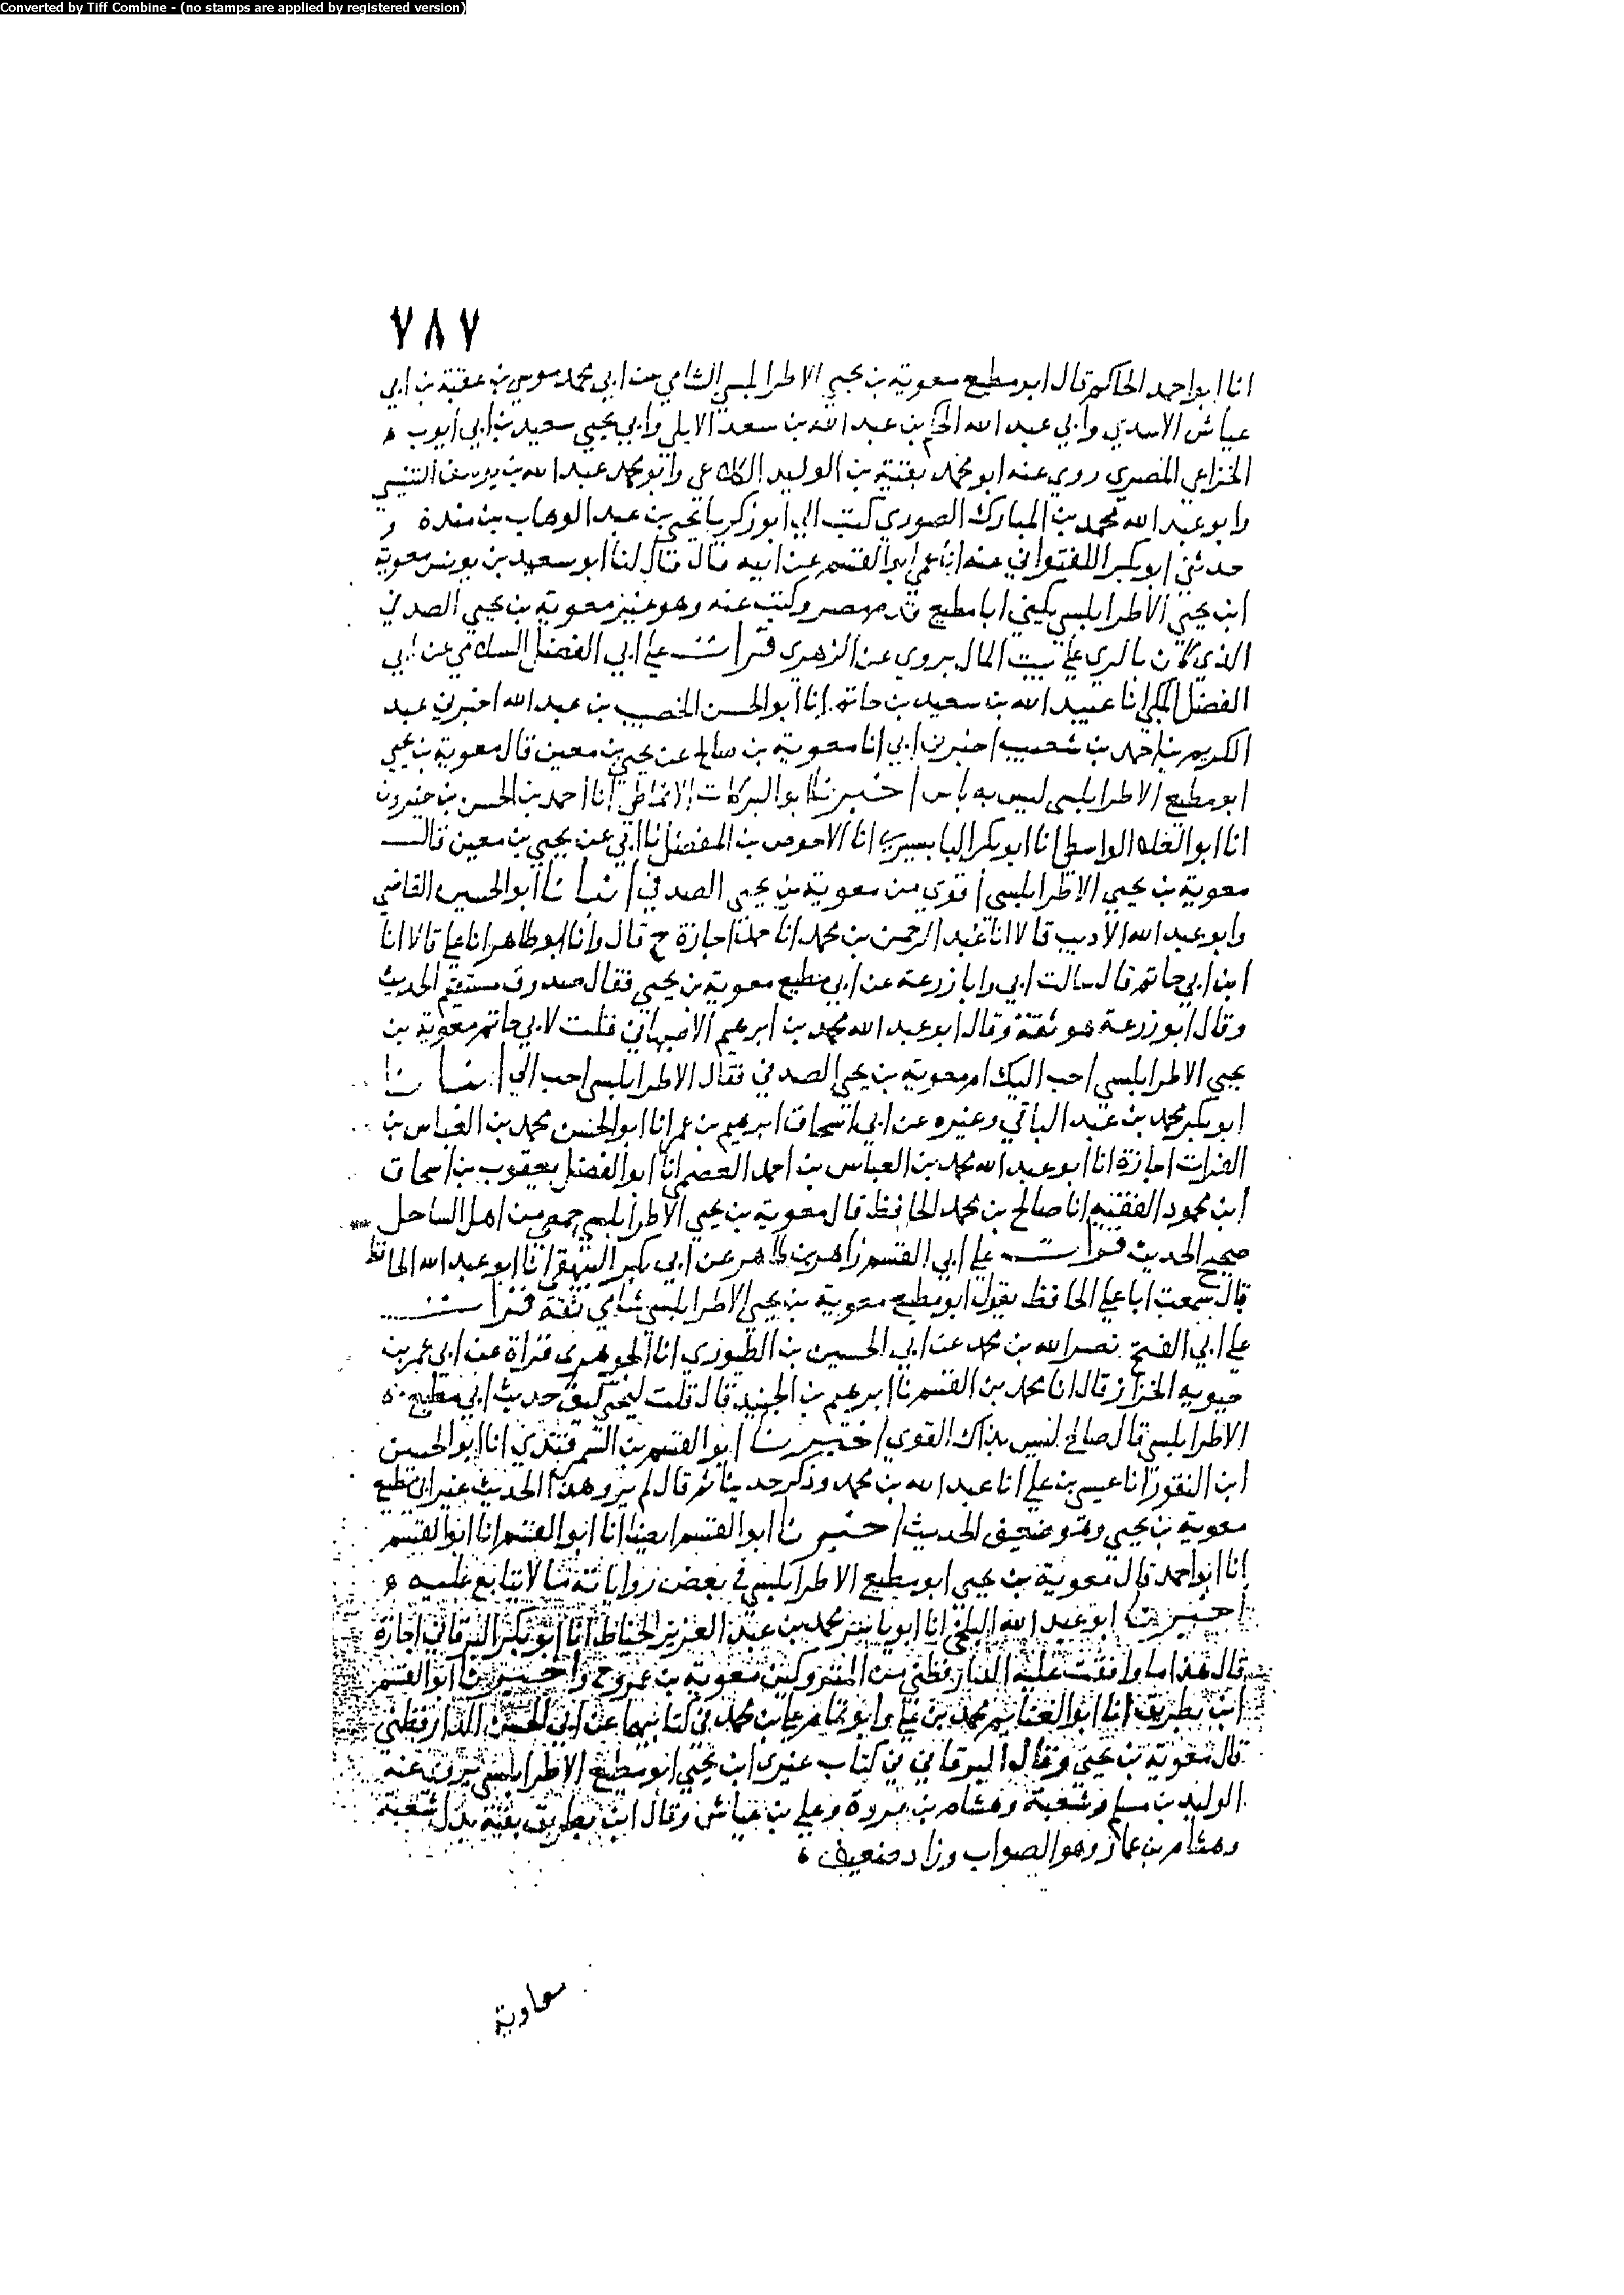 Converted by Tiff Combine - (no stamps are applied by registered version)
٧٨٧
انا ابو احمد الحاكم قال ابو مطيع معوية بن يحيى الاطرابلسي الشامي عن ابي محمد موسى بن عقبة بن ابي
عياش الاسدي وابي عبد الله الحكم بن عبد الله بن سعد الايلي وابي يحيى سعيد بن ابي ايوب
الخزاعي المصري روى عنه ابو محمد بقية بن الوليد الكلاعي وابو محمد عبد الله بن يوسف التنيسي
وابو عبد الله محمد بن المبارك الصوري كتب الي ابو زكريا يحيى بن عبد الوهاب بن مندة و
حدثني ابو بكر اللفتواني عنه انا عمي ابو القسم عن ابيه قال قال لنا ابو سعيد بن يونس معوية
ابن يحيى الاطرابلسي يكنى ابا مطيع قدم مصر وكتب عنه وهو غير معوية بن يحيى الصدفي
الذي كان بالري على بيت المال يروي عن الزهري قرات على ابي الفضل السلامي عن ابي
الفضل المكي انا عبيد الله بن سعيد بن حاتم انا ابو الحسن الخصيب بن عبد الله اخبرني عبد
الكريم بن احمد بن شعيب اخبرني ابي انا معوية بن صالح عن يحيى بن معين قال معوية بن يحيى
ابو مطيع الاطرابلسي ليس به باس اخبرنا ابو البركات الانماطي انا احمد بن الحسن بن خيرون
انا ابو العلاء الواسطي انا ابو بكر البابسيري انا الاحوص بن المفضل نا ابي عن يحيى بن معين قال
معوية بن يحيى الاطرابلسي اقوى من معوية بن يحيى الصدفي انبانا ابو الحسين القاضي
وابو عبد الله الاديب قالا انا عبد الرحمن بن محمد انا حمد اجازة ح قال وانا ابو طاهر انا علي قالا انا
ابن ابي حاتم قال سالت ابي وابا زرعة عن ابي مطيع معوية بن يحيى فقال صدوق مستقيم الحديث
وقال ابو زرعة هو ثقة وقال ابو عبد الله محمد بن ابرهيم الاصبهاني قلت لابي حاتم معوية بن
يحيى الاطرابلسي احب اليك ام معوية بن يحيى الصدفي فقال الاطرابلسي احب الي انبانا
ابو بكر محمد بن عبد الباقي وغيره عن ابي اسحاق ابرهيم بن عمر انا ابو الحسن محمد بن العباس بن
الفرات اجازة انا ابو عبد الله محمد بن العباس بن احمد العصمي انا ابو الفضل يعقوب بن اسحاق
ابن محمود الفقيه انا صالح بن محمد الحافظ قال معوية بن يحيى الاطرابلسي حمصي من اهل الساحل
صحيح الحديث قرات على ابي القسم زاهر بن طاهر عن ابي بكر البيهقي انا ابو عبد الله الحافظ
قال سمعت ابا علي الحافظ يقول ابو مطيع معوية بن يحيى الاطرابلسي شامي ثقة قرات
على ابي الفتح نصر الله بن محمد عن ابي الحسين بن الطيوري انا الجوهري قراة عن ابي عمر بن
حيويه الخزاز قال انا محمد بن القسم نا ابرهيم بن الجنيد قال قلت ليحيى كيف حديث ابي مطيع
الاطرابلسي قال صالح ليس بذاك القوي اخبرنا ابو القسم بن السمرقندي انا ابو الحسين
ابن النقور انا عيسى بن علي انا عبد الله بن محمد وذكر حديثا ثم قال لم يرو هذا الحديث غير ابي مطيع
معوية بن يحيى وهو ضعيف الحديث اخبرنا ابو القسم ايضا انا ابو القسم انا ابو القسم
انا ابو احمد قال معوية بن يحيى ابو مطيع الاطرابلسي في بعض رواياته ما لا يتابع عليه
اخبرنا ابو عبد الله البلخي انا ابو ياسر محمد بن عبد العزيز الخياط انا ابو بكر البرقاني اجازة
قال هذا ما وافقت عليه الدارقطني من المتروكين معوية بن ح واخبرنا ابو القسم
ابن بطريق انا ابو الغنايم محمد بن علي وابو تمام علي بن محمد في كتابيهما عن ابي الحسن الدارقطني
قال معوية بن يحيى وقال البرقاني في كتاب غيري ابن يحيى ابو مطيع الاطرابلسي يروي عنه
الوليد بن مسلم وشعبة وهشام بن عروة وعلي بن عياش وقال ابن بطريق بقية بدل شعبة
وهشام بن عمار وهو الصواب وزاد ضعيف
معاوية